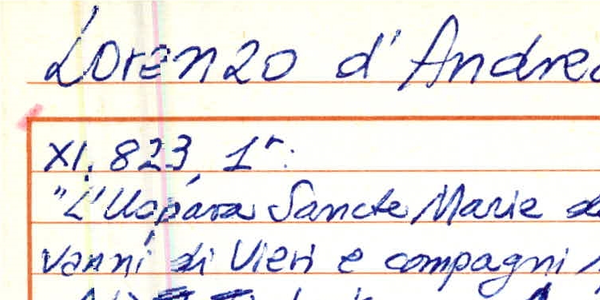 Lorenzo d'Andrea
XI, 823, 1r:
"L'Uopára Sancte Marie de
vanni di Vieri e compagni